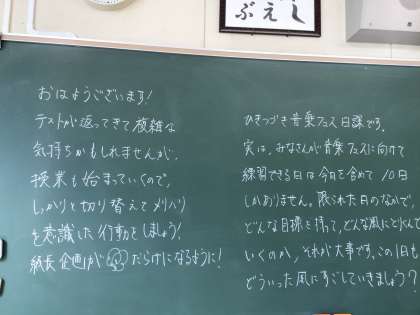 しえぶ
おはようございます!
テストが返ってきて複雑な
気持ちかもしれませんが、
授業も始まっていくので、
しっかりと切り替えてメリハリ
を意識した行動をしましょう!
級長企画が だらけになるように!
ひきつづき音楽フェス日課です。
実は、みなさんが音楽フェスに向けて
練習できる日は今日を含めて10日
しかありません。限られた日のなかで、
どんな目標を持って、どんな風にとりくんで
いくのか、それが大事です。この1日も
どういった風にすごしていきましょう?